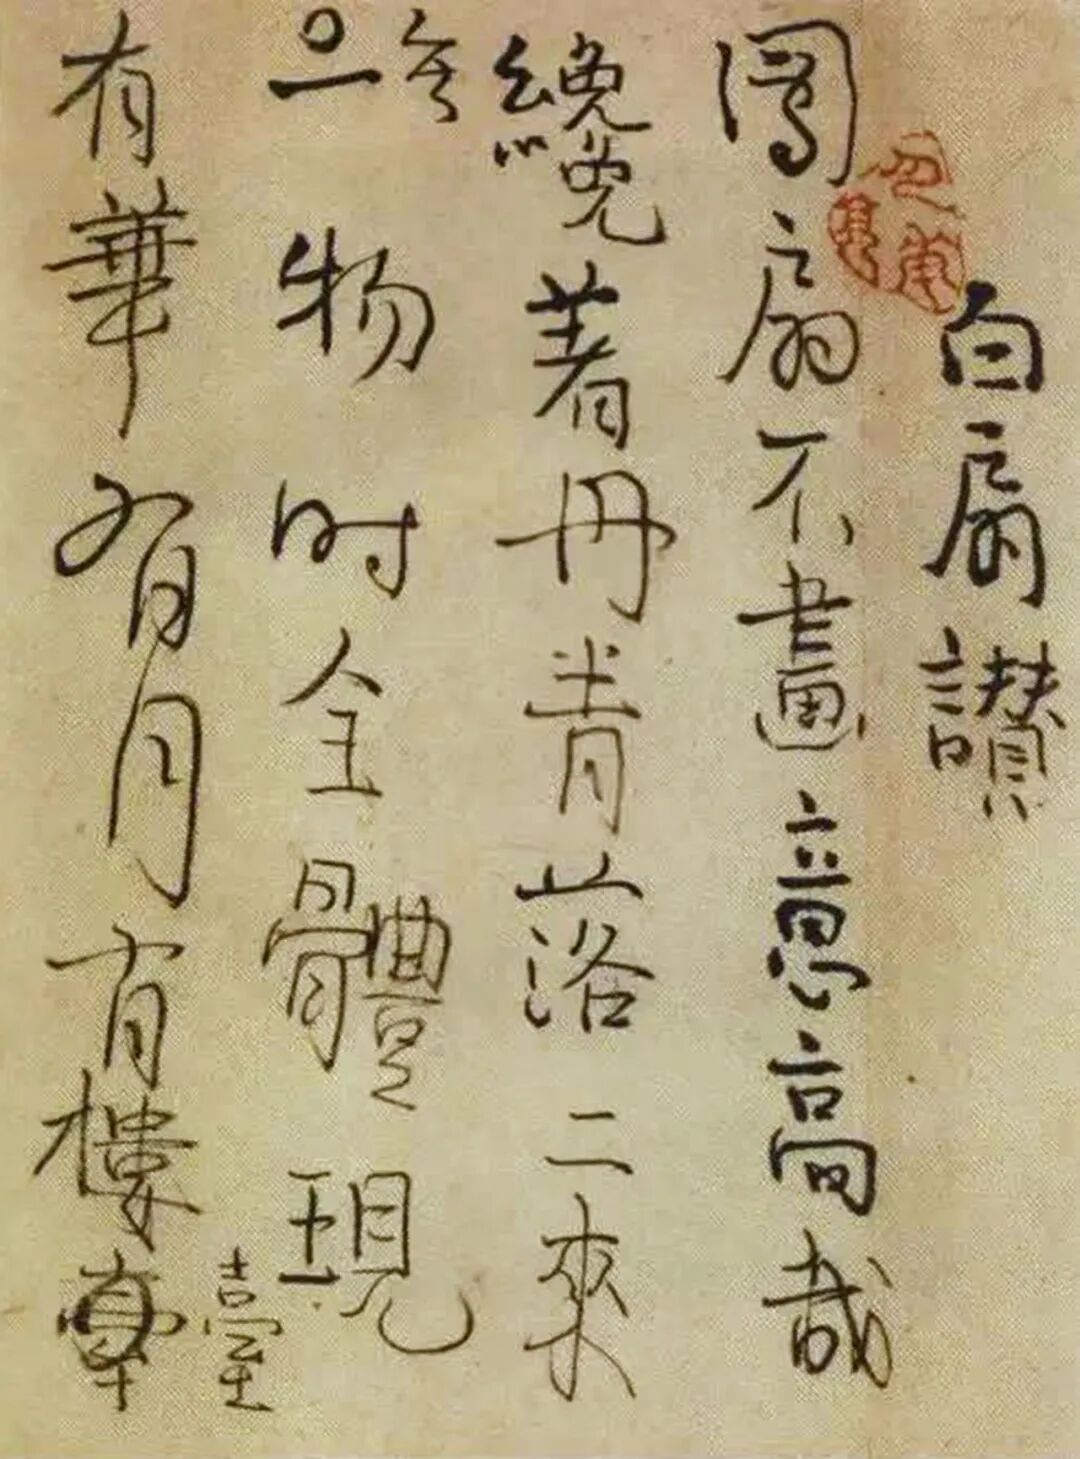 白扇讃
團扇不畫意高哉
纔著丹青落二來
無一物时全體現
有華有月有樓臺